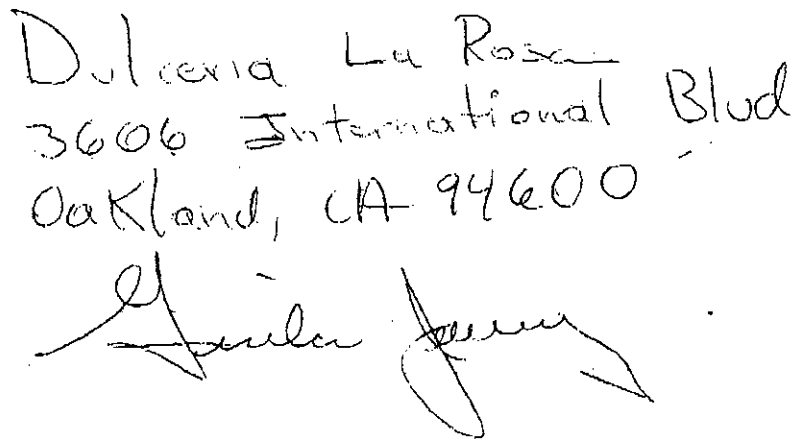 Dulceria La Rosa
3606 International Blvd
Oakland, CA 94600